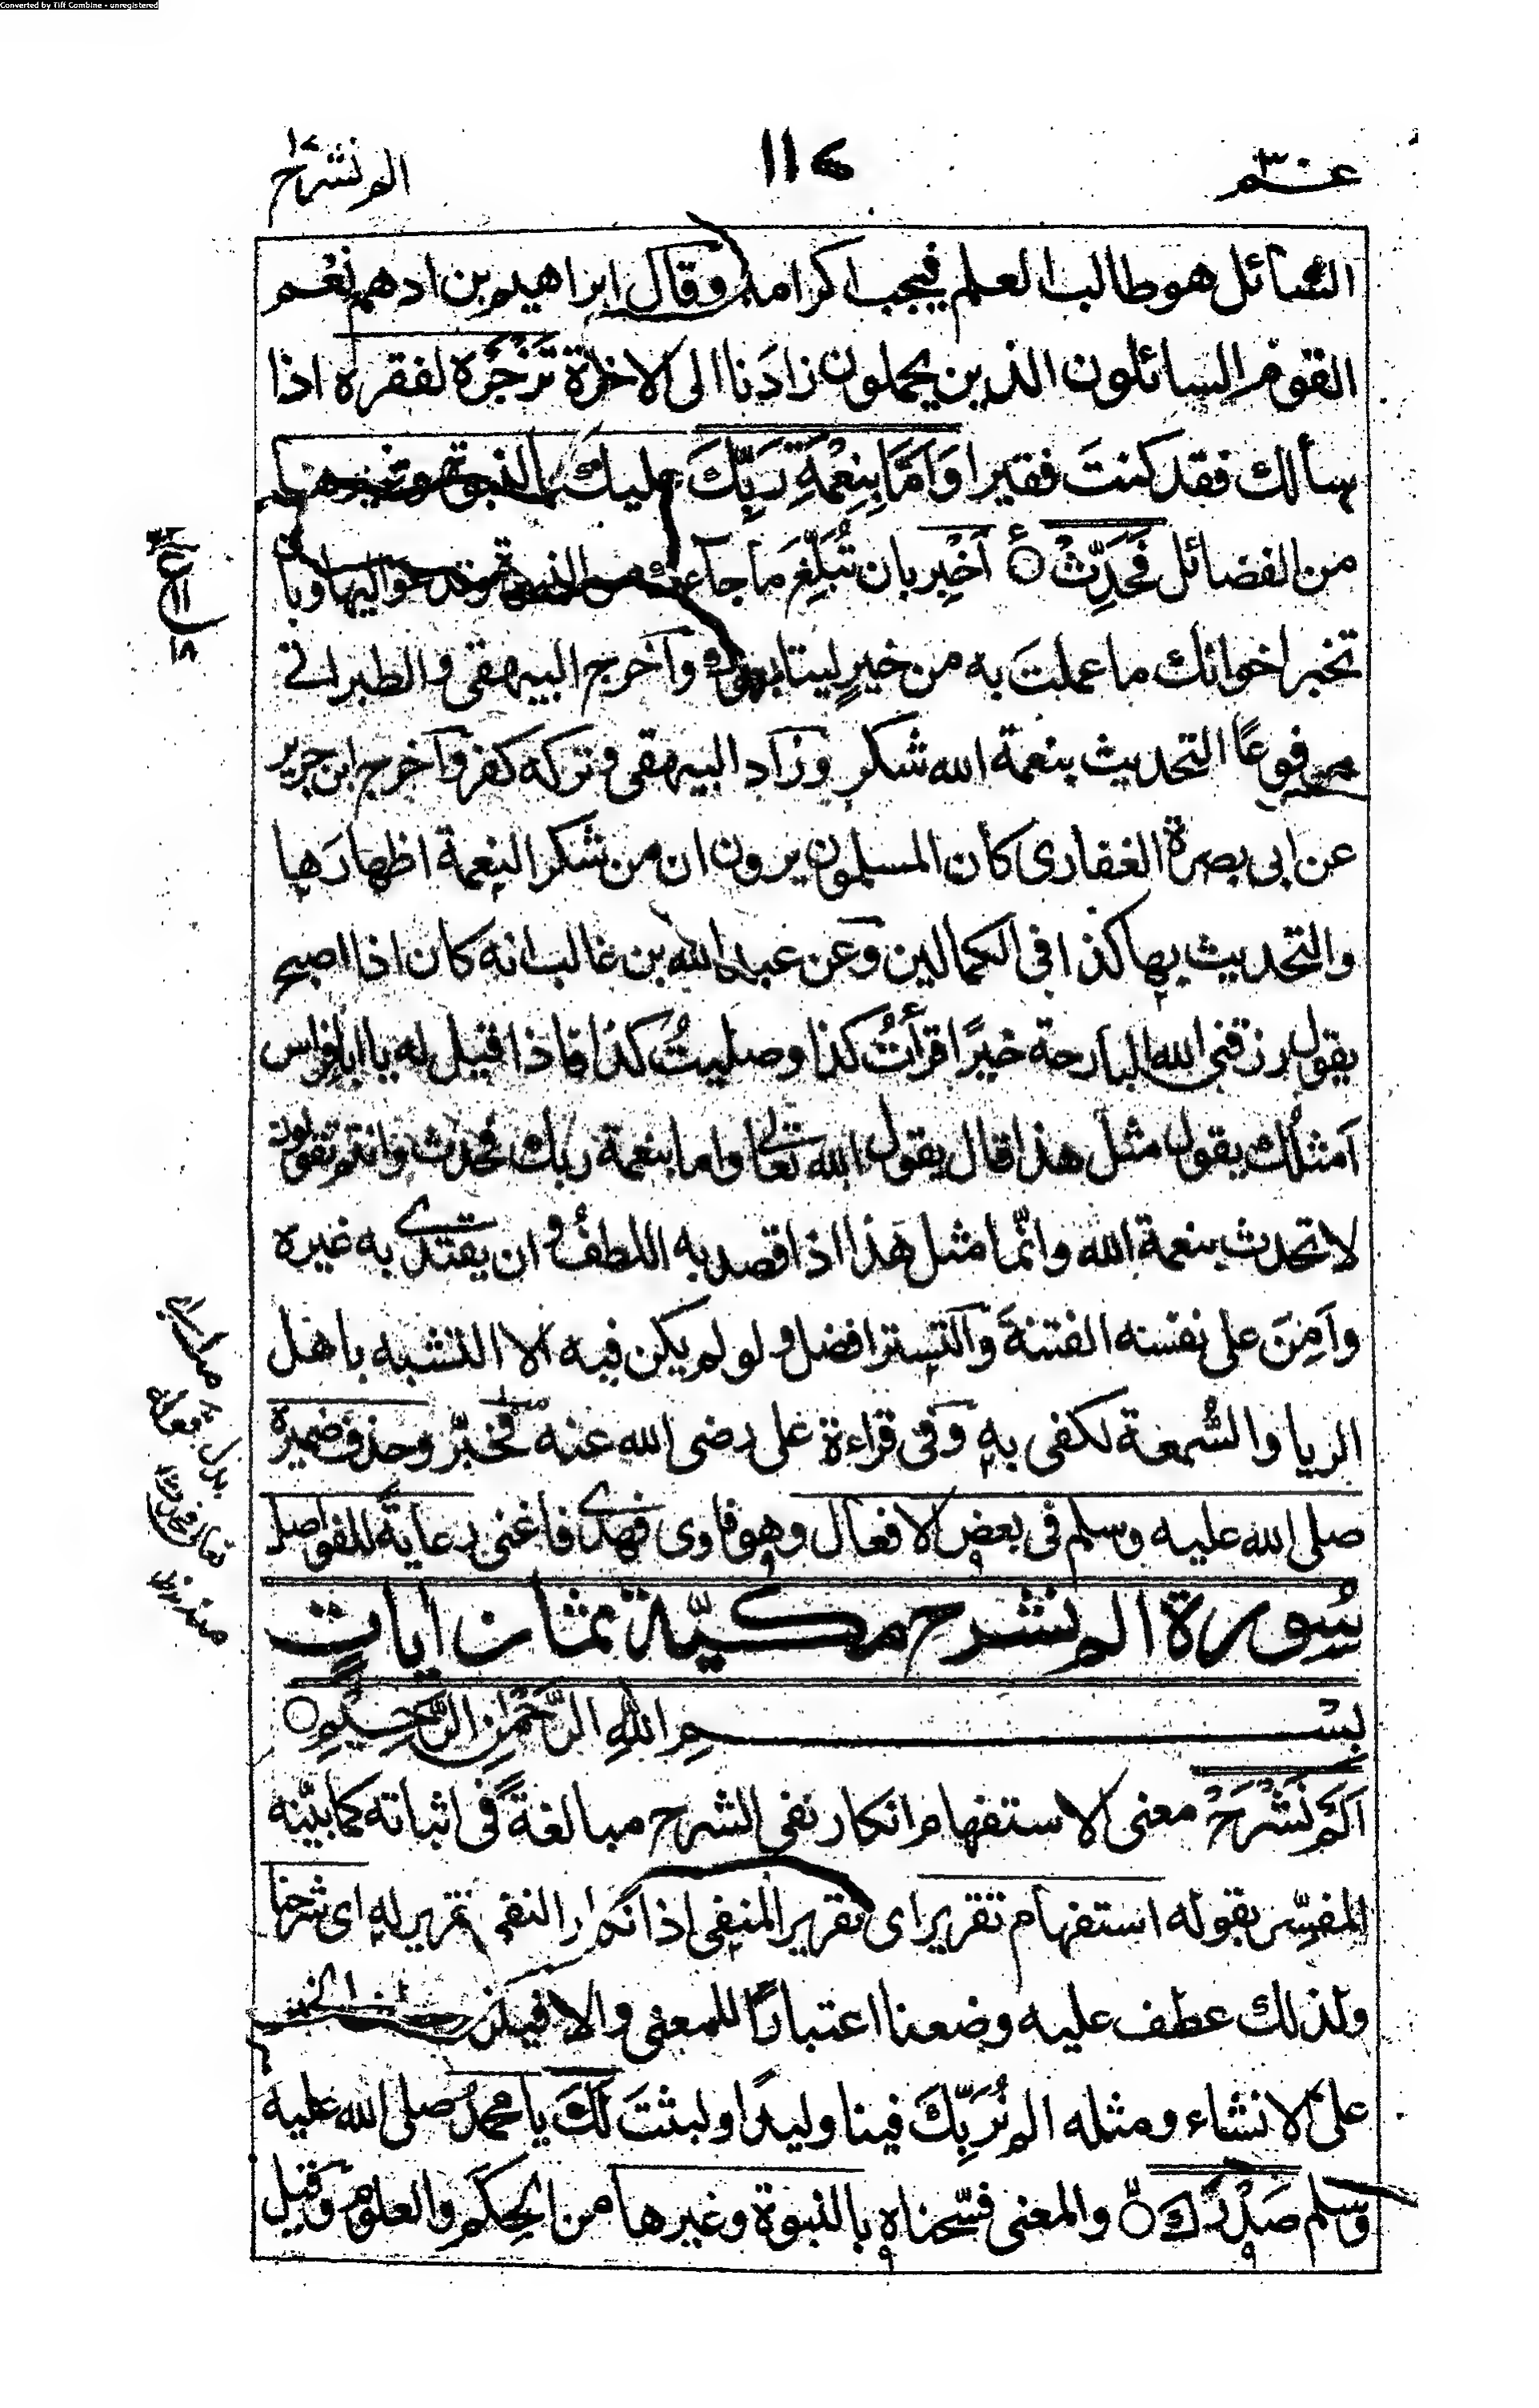 Converted by Tiff Combine - unregistered
عم ٣٠
١١٧
الم نشرح
السائل هو طالب العلم فيجب اكرامه وقال ابراهيم بن ادهم نعم
القوم السائلون الذين يحملون زادَنا الى الاخرة تَزْجُرْه لفقره اذا
سألك فقد كنتَ فقيرا وَاَمَّا بِنِعْمَةِ رَبِّكَ عليك بالنبوة وغيرها
من الفضائل فَحَدِّثْ اَخْبِر بان تُبَلِّغ ما جاءك من النبوة وتدعو اليها وبان
تخبر اخوانك ما عملتَ به من خيرٍ ليتابعوك واخرج البيهقى والطبرانى
مرفوعًا التحديث بنعمة الله شكر وزاد البيهقى وتركه كفر واخرج ابن جرير
عن ابى بصرة الغفارى كان المسلمون يرون ان من شكر النعمة اظهارَها
والتحديث بها كذا فى الكمالين وعن عبد الله بن غالب انه كان اذا اصبح
يقول رزقنى الله البارحة خيرًا قرأتُ كذا وصليتُ كذا فاذا قيل له يا ابا فراس
اَمثلُك يقول مثل هذا قال يقول الله تعالى واما بنعمة ربك فحدث وانتم تقولون
لا تحدث بنعمة الله وانّما مثل هذا اذا قصد به اللطفُ وان يقتدى به غيره
واَمِنَ على نفسه الفتنةَ والتستر افضل ولو لم يكن فيه الا التشبه باهل
الريا والسُّمعة لكفى به وفى قراءة على رضى الله عنه فخبّر وحذف ضميره
صلى الله عليه وسلم فى بعض الافعال وهو فاوى فهدى فاغنى رعايةً للفواصل
سُورة الم نشرح مكيّة ثمان ايات
بسم اللهِ الرَّحْمٰنِ الرَّحِيْمِ
اَلَمْ نَشْرَحْ معنى الاستفهام انكار نفى الشرح مبالغةً فى اثباته كما بيّنه
المفسِّر بقوله استفهام تقرير اى تقرير المنفى اذ انكار النفى تقرير له اى شرحنا
ولذلك عطف عليه وضعنا اعتبارًا للمعنى والا فيلزم عطف الخبر
على الانشاء ومثله الم نُرَبِّكَ فينا وليدًا ولبثتَ لَكَ يا محمدُ صلى الله عليه
وسلم صَدْرَكَ والمعنى فسّحناه بالنبوة وغيرها من الحِكَم والعلوم وقيل
ع
١١
١٨